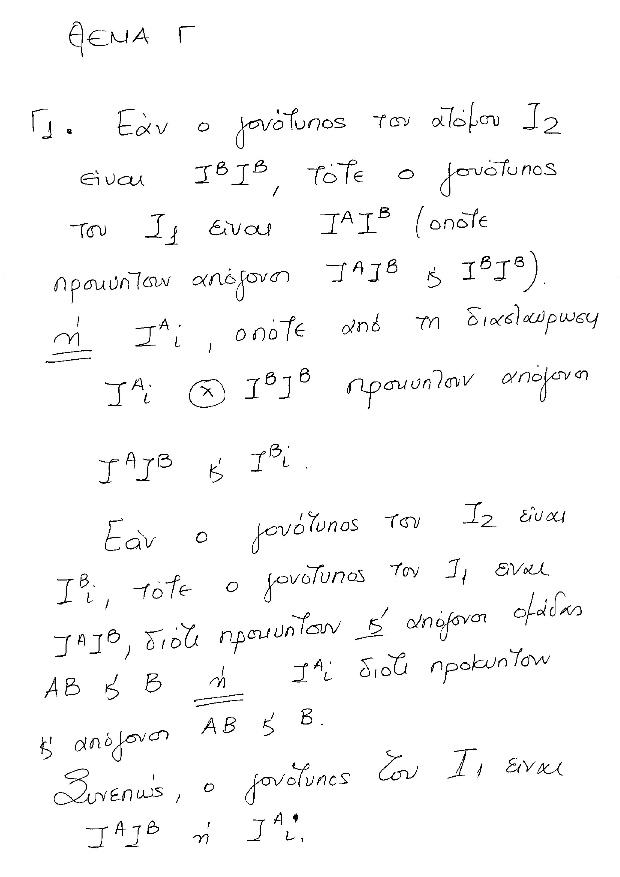 ΘΕΜΑ Γ
Γ1. Εάν ο γονότυπος του ατόμου I2
είναι IᴮIᴮ, τότε ο γονότυπος
του I1 είναι IᴬIᴮ (οπότε
προκύπτουν απόγονοι IᴬIᴮ & IᴮIᴮ).
ή Iᴬi, οπότε από τη διασταύρωση
Iᴬi ⊗ IᴮIᴮ προκύπτουν απόγονοι
IᴬIᴮ & Iᴮi.
Εάν ο γονότυπος του I2 είναι
Iᴮi, τότε ο γονότυπος του I1 ειναι
IᴬIᴮ, διότι προκυπτουν & απόγονοι ομάδας
AB & B ή Iᴬi διοτι προκυπτουν
& απόγονοι AB & B.
Συνεπώς, ο γονότυπος του I1 ειναι
IᴬIᴮ ή Iᴬi.